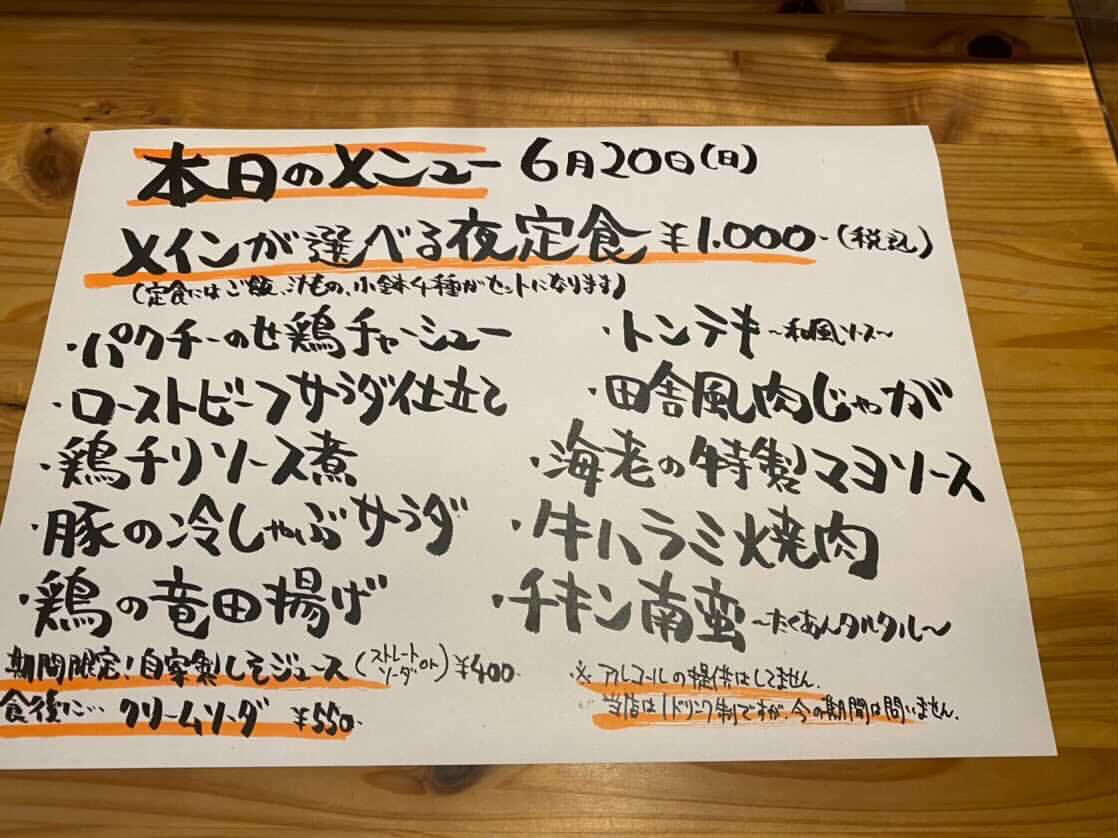 本日のメニュー 6月20日(日)
メインが選べる夜定食 ¥1.000-(税込)
(定食にはご飯、汁もの、小鉢4種がセットになります)
・パクチーのせ鶏チャーシュー
・ローストビーフサラダ仕立て
・鶏チリソース煮
・豚の冷しゃぶサラダ
・鶏の竜田揚げ
・トンテキ~和風ソース~
・田舎風肉じゃが
・海老の特製マヨソース
・牛ハラミ焼肉
・チキン南蛮~たくあんタルタル~
期間限定!自家製しそジュース(ストレート ソーダ OK)¥400-
食後に… クリームソーダ ¥550-
※ アルコールの提供はしてません.
当店は1ドリンク制ですが、今の期間は問いません.